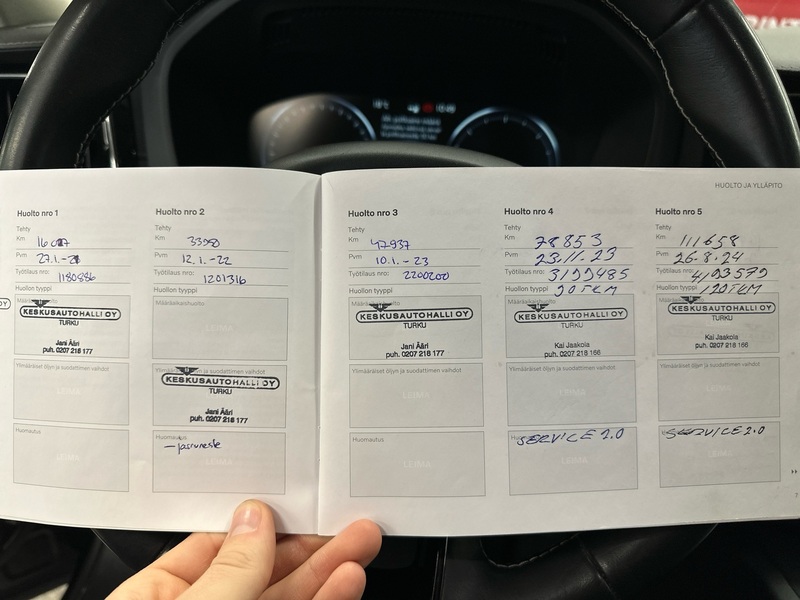 HUOLTO JA YLLÄPITO
Huolto nro 1
Tehty
Km
Pvm 27.1.-21
Työtilaus nro: 1180886
Huollon tyyppi
KESKUSAUTOHALLI OY
TURKU
Jani Ääri
puh. 0207 218 177
Ylimääräiset öljyn ja suodattimen vaihdot
LEIMA
Huomautus
LEIMA
Huolto nro 2
Tehty
Km
Pvm 12.1.-22
Työtilaus nro: 1201316
Huollon tyyppi
Määräaikaishuolto
LEIMA
Ylimääräiset öljyn ja suodattimen vaihdot
KESKUSAUTOHALLI OY
TURKU
Jani Ääri
puh. 0207 218 177
Huomautus
– jarruneste
LEIMA
Huolto nro 3
Tehty
Km 47937
Pvm 10.1.-23
Työtilaus nro: 2200200
Huollon tyyppi
KESKUSAUTOHALLI OY
TURKU
Jani Ääri
puh. 0207 218 177
Ylimääräiset öljyn ja suodattimen vaihdot
LEIMA
Huomautus
LEIMA
Huolto nro 4
Tehty
Km 78853
Pvm 23.11.23
Työtilaus nro: 3199485
Huollon tyyppi 90TKM
Määräaikaishuolto
KESKUSAUTOHALLI OY
TURKU
Kai Jaakola
puh. 0207 218 166
Ylimääräiset öljyn ja suodattimen vaihdot
LEIMA
SERVICE 2.0
LEIMA
Huolto nro 5
Tehty
Km 111658
Pvm 26.8.24
Työtilaus nro: 4193579
Huollon tyyppi 120TKM
KESKUSAUTOHALLI OY
TURKU
Kai Jaakola
puh. 0207 218 166
Ylimääräiset öljyn ja suodattimen vaihdot
LEIMA
SERVICE 2.0
LEIMA